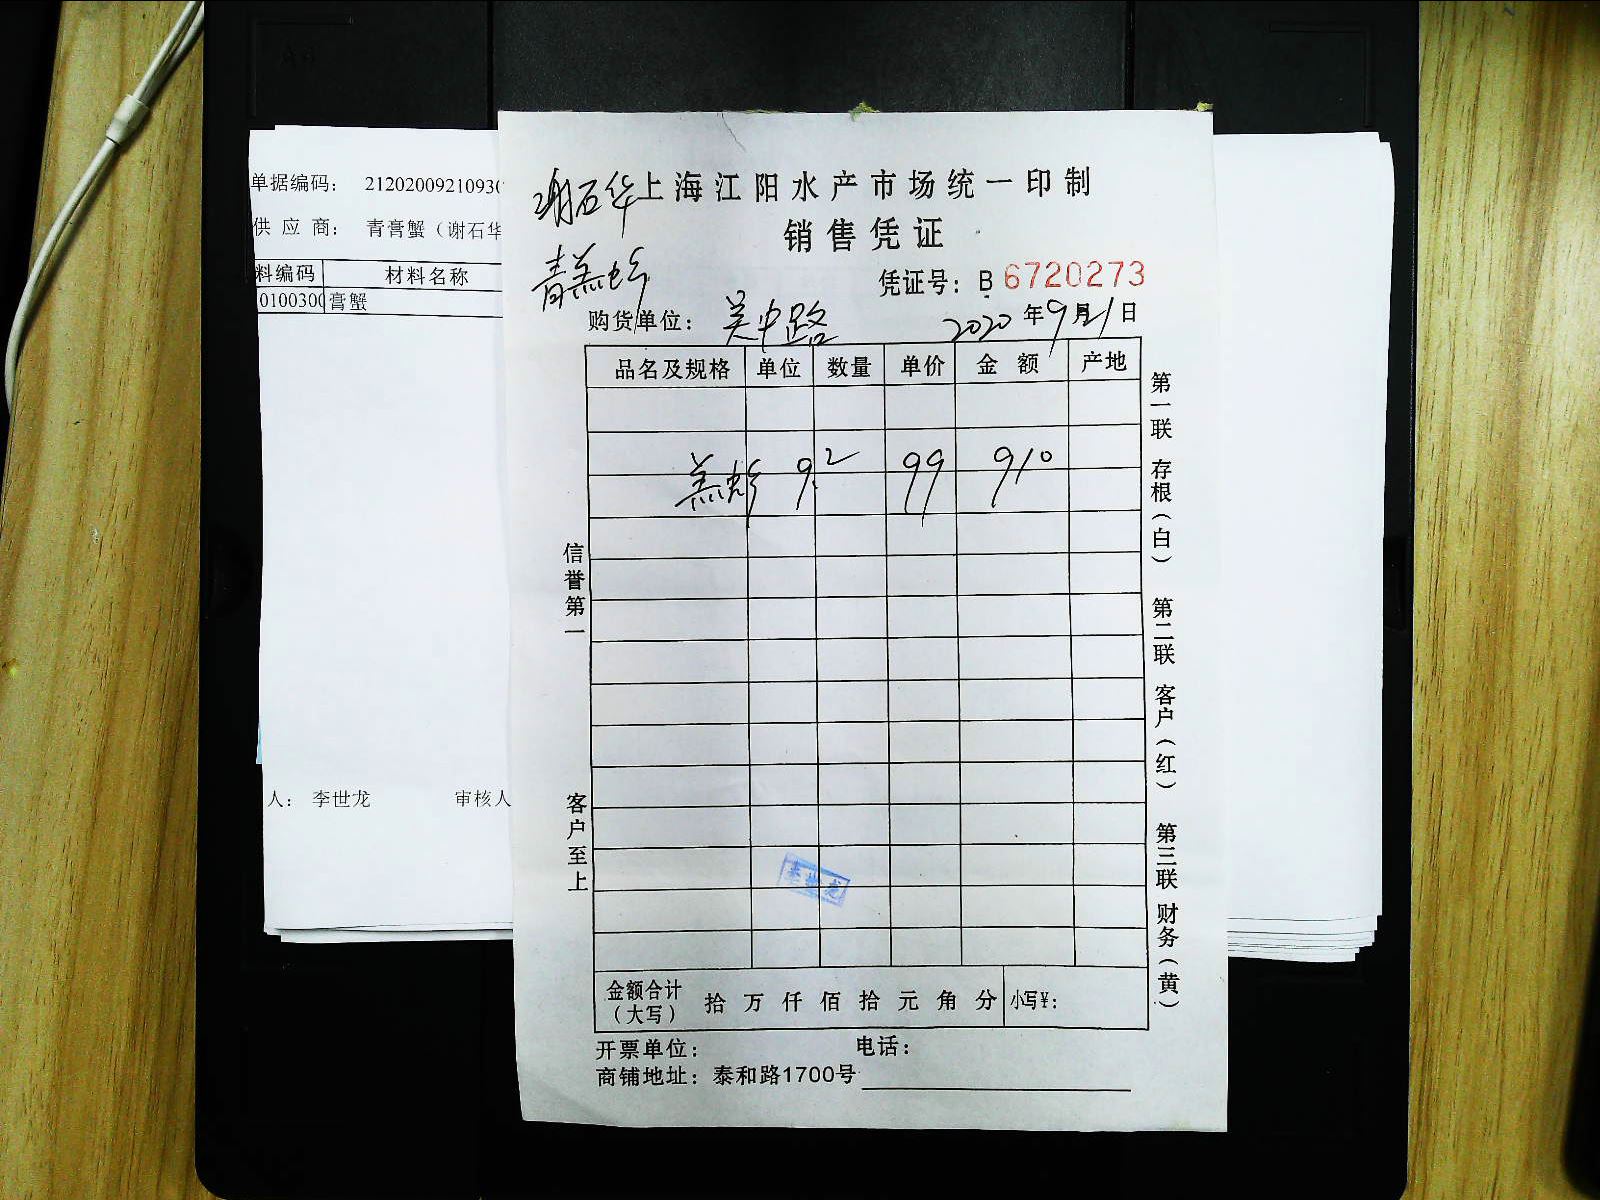 单据编码： 2120200921093
供 应 商： 青膏蟹（谢石华
料编码 材料名称
0100300 膏蟹
人： 李世龙 审核人
谢石华 上海江阳水产市场统一印制
销售凭证
青羔蟹
凭证号：B 6720273
购货单位： 吴中路 2020 年 9 月 21 日
品名及规格 单位 数量 单价 金 额 产地
羔蟹 9.2 99 910
信誉第一
客户至上
李世龙
金额合计（大写） 拾 万 仟 佰 拾 元 角 分 小写¥：
开票单位： 电话：
商铺地址：泰和路1700号
第一联 存根（白） 第二联 客户（红） 第三联 财务（黄）